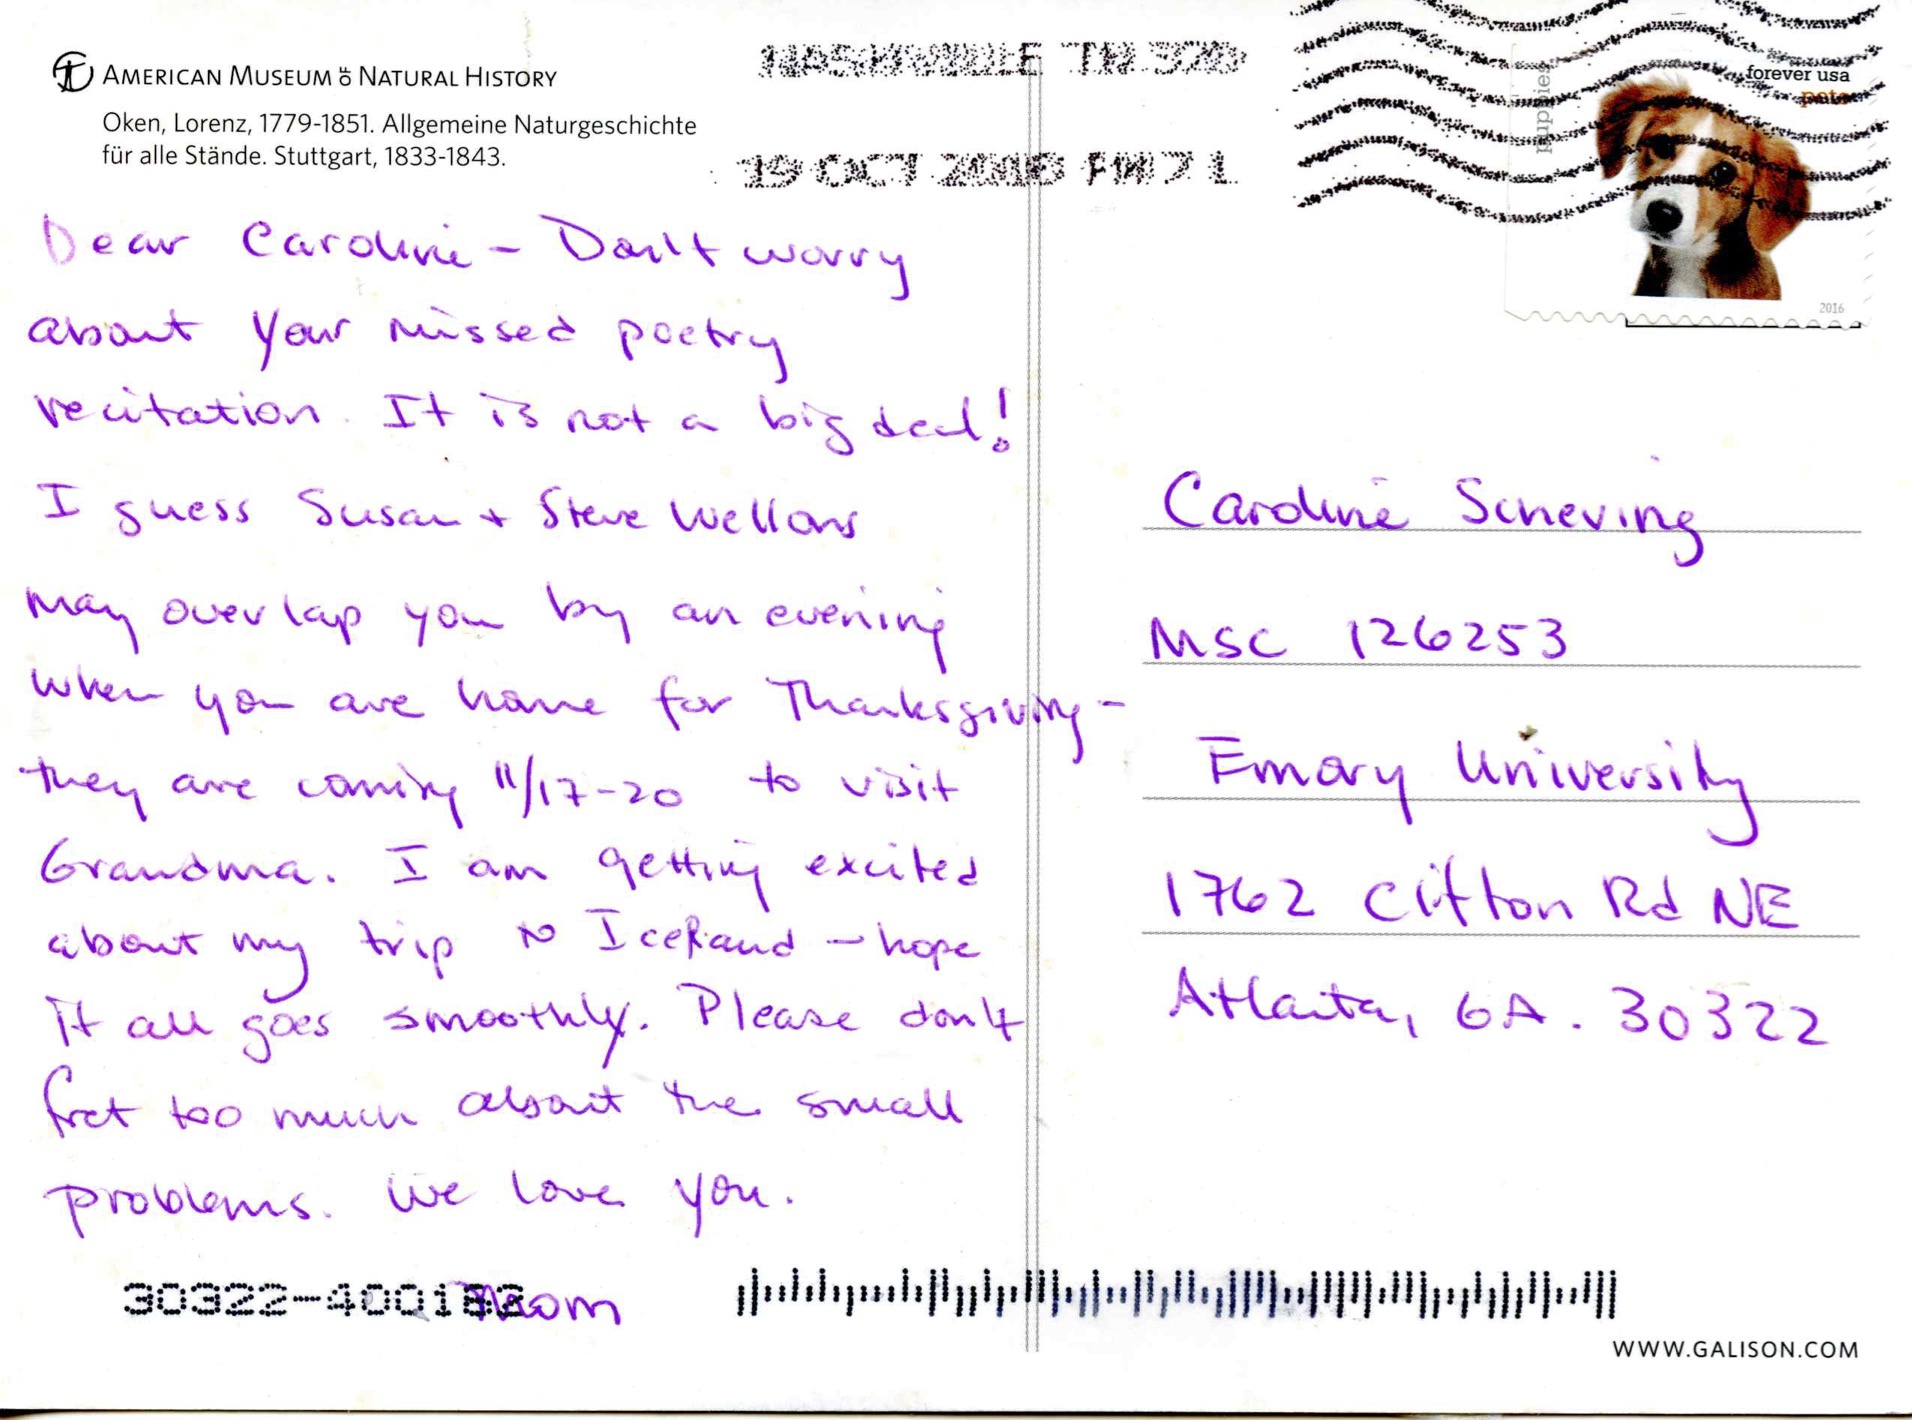 AMERICAN MUSEUM OF NATURAL HISTORY
Oken, Lorenz, 1779-1851. Allgemeine Naturgeschichte
für alle Stände. Stuttgart, 1833-1843.
NASHVILLE TN 370
19 OCT 2018 PM 7 L
puppies
forever usa
pets
2016
Dear Caroline - Don't worry
about your missed poetry
recitation. It is not a big deal!
I guess Susan + Steve Wellons
may overlap you by an evening
when you are home for Thanksgiving -
they are coming 11/17-20 to visit
Grandma. I am getting excited
about my trip to Iceland - hope
it all goes smoothly. Please don't
fret too much about the small
problems. We love you.
Mom
Caroline Scheving
MSC 126253
Emory University
1762 Clifton Rd NE
Atlanta, GA. 30322
30322-400182
WWW.GALISON.COM